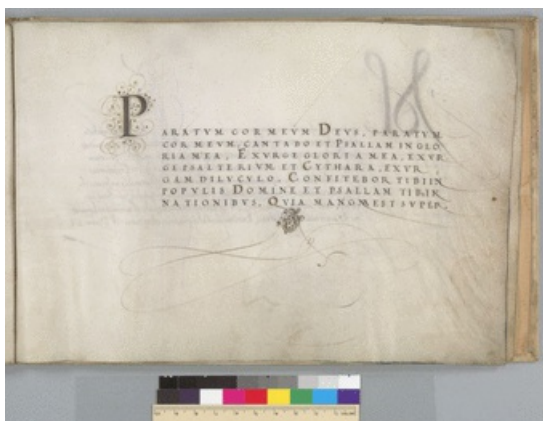 PARATVM COR MEVM DEVS, PARATVM
COR MEVM, CANTABO ET PSALLAM IN GLO
RIA MEA, EXVRGE GLORIA MEA, EXVR
GE PSALTERIVM ET CYTHARA, EXVR
GAM DILVCVLO, CONFITEBOR TIBI IN
POPVLIS DOMINE ET PSALLAM TIBI IN
NATIONIBVS, QVIA MANGNA EST SVPER